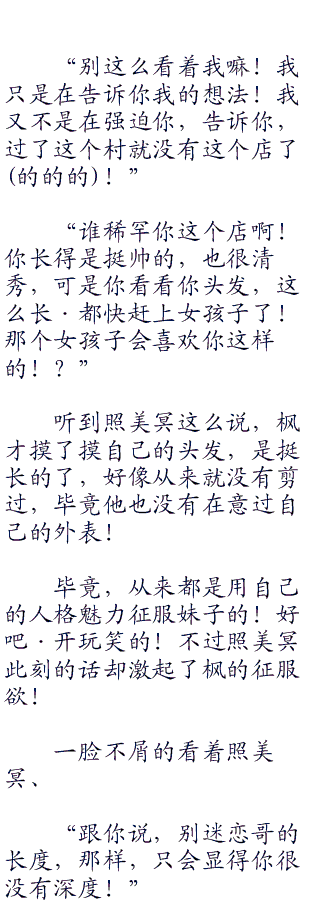 “别这么看着我嘛！我
只是在告诉你我的想法！我
又不是在强迫你，告诉你，
过了这个村就没有这个店了
(的的的)！”
“谁稀罕你这个店啊！
你长得是挺帅的，也很清
秀，可是你看看你头发，这
么长·都快赶上女孩子了！
那个女孩子会喜欢你这样
的！？”
听到照美冥这么说，枫
才摸了摸自己的头发，是挺
长的了，好像从来就没有剪
过，毕竟他也没有在意过自
己的外表！
毕竟，从来都是用自己
的人格魅力征服妹子的！好
吧·开玩笑的！不过照美冥
此刻的话却激起了枫的征服
欲！
一脸不屑的看着照美
冥、
“跟你说，别迷恋哥的
长度，那样，只会显得你很
没有深度！”